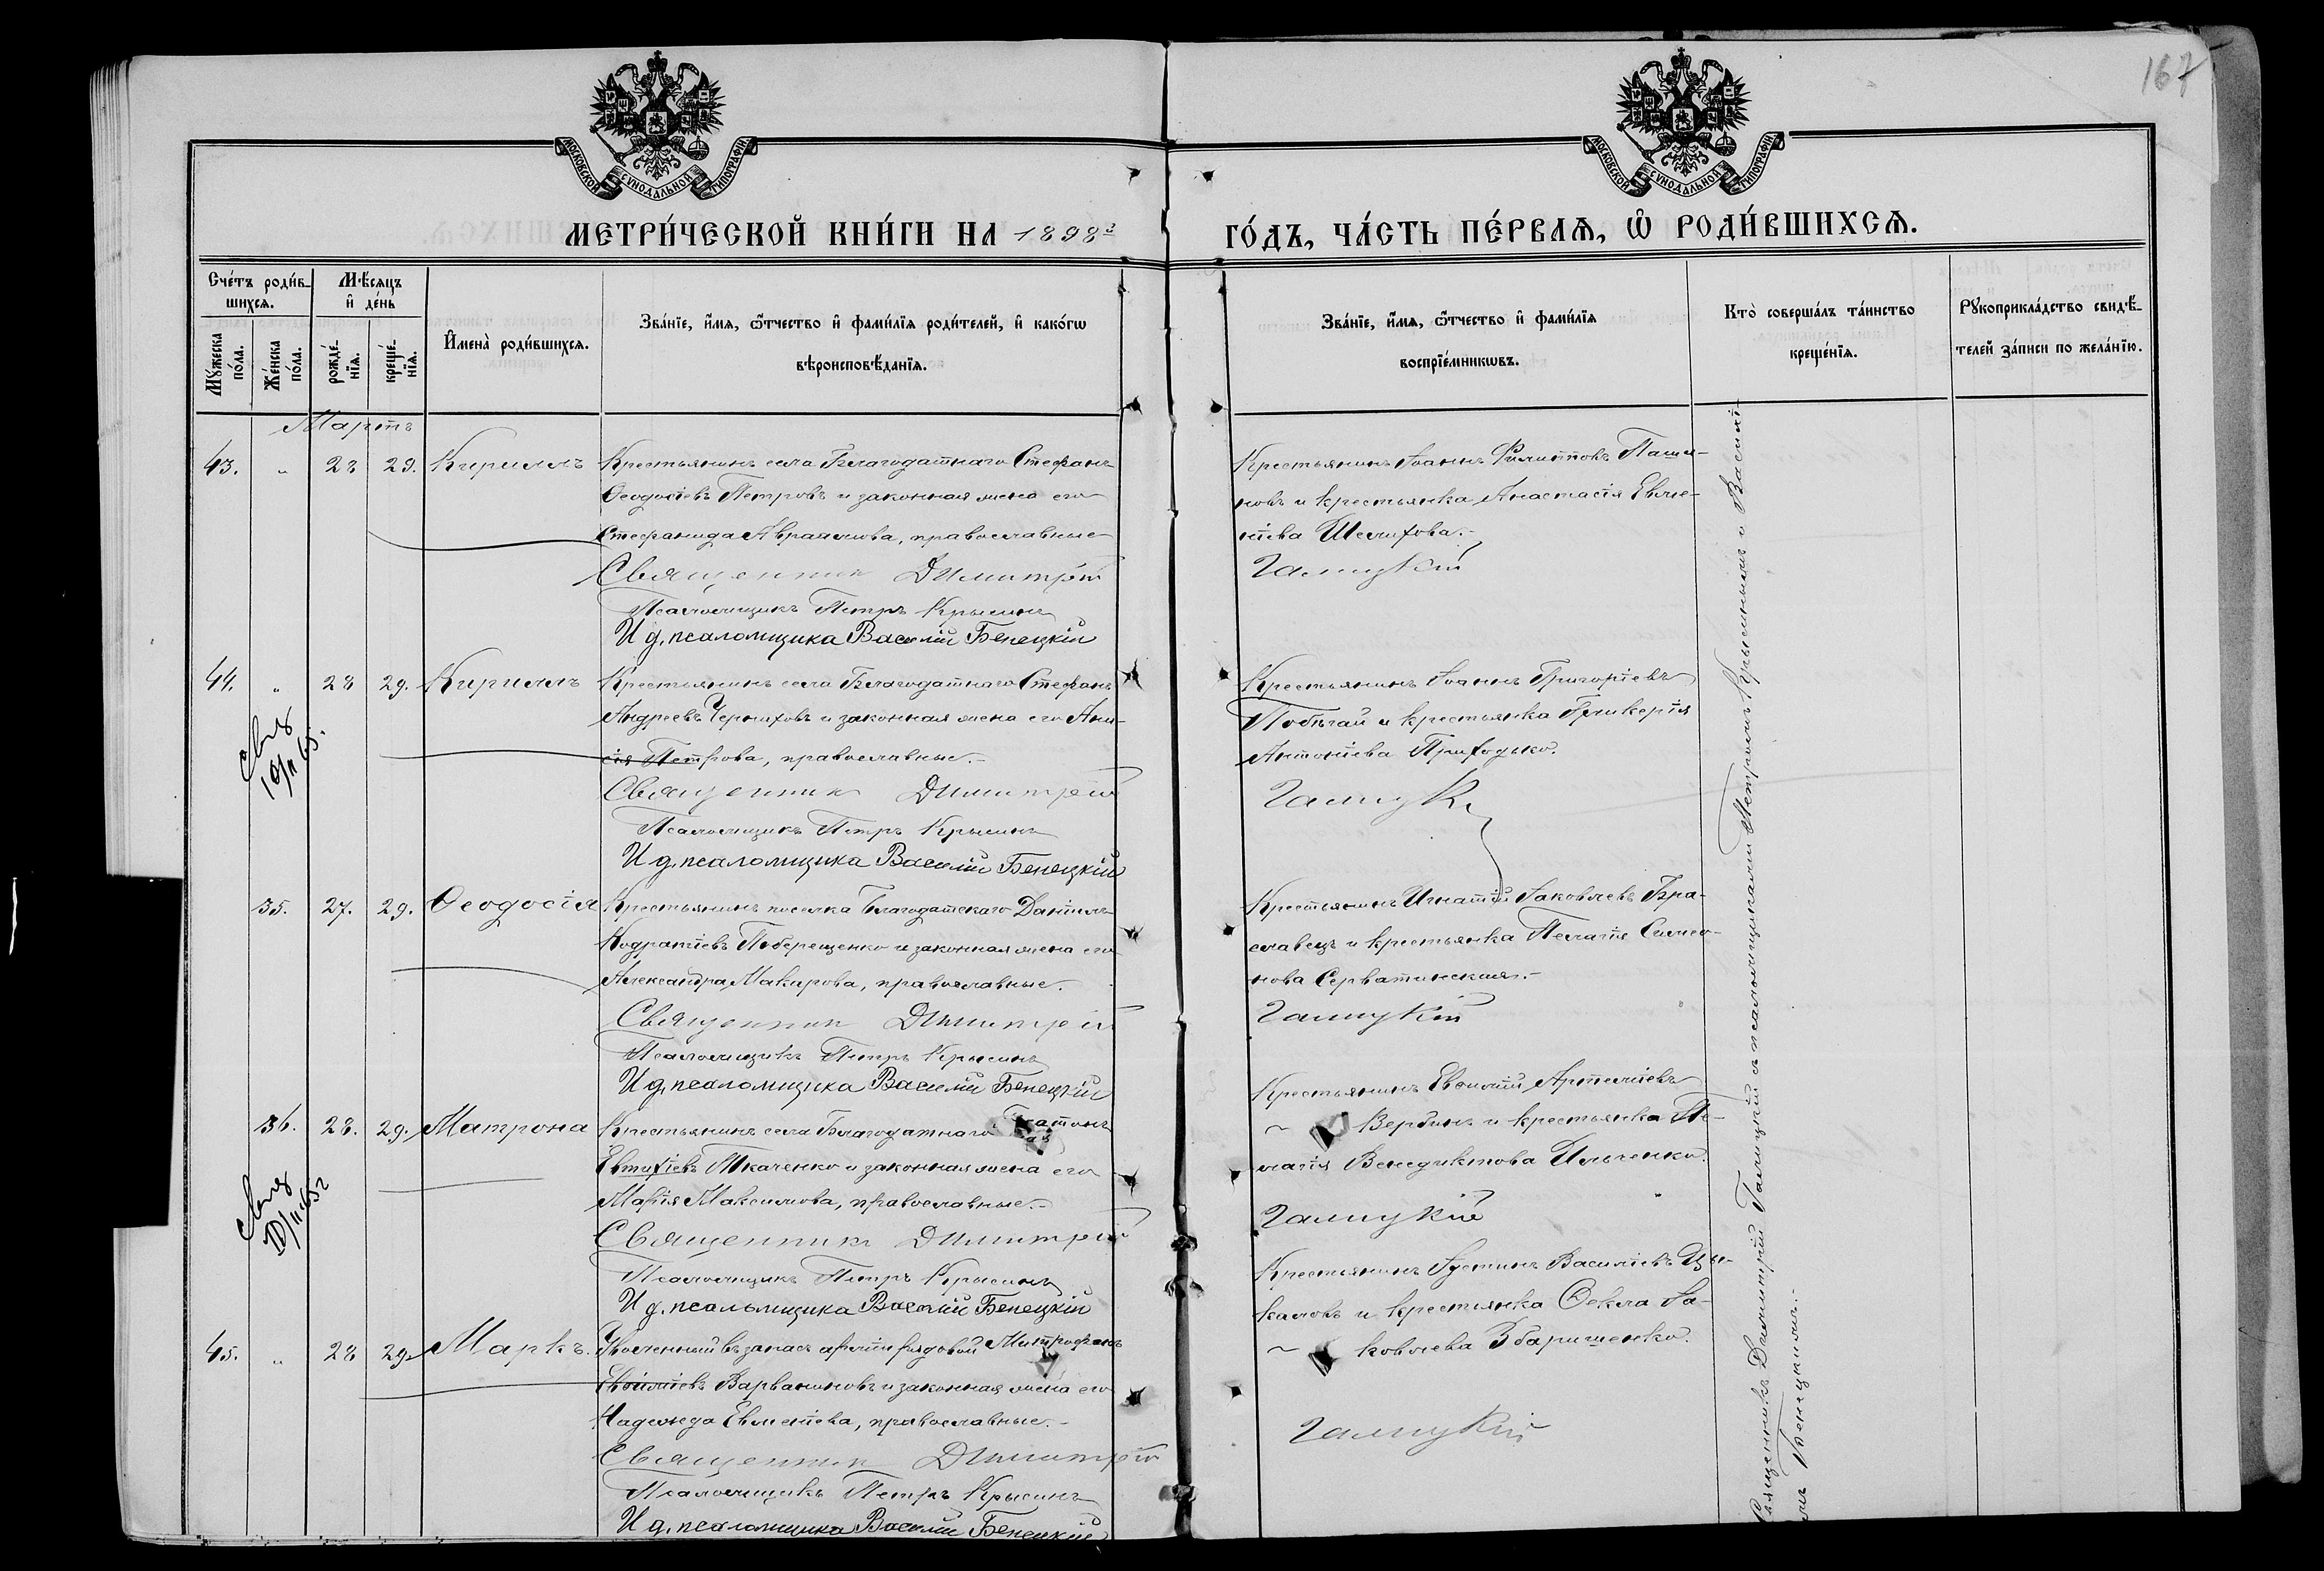 167
МОСКОВСКОЙ СѴНОДАЛЬНОЙ ТИПОГРАФІИ
МОСКОВСКОЙ СѴНОДАЛЬНОЙ ТИПОГРАФІИ
МЕТРИ́ЧЕСКОЙ КНИ́ГИ НА 1898 г
ГО́ДЪ, ЧА́СТЬ ПЕ́РВАѦ, Ѡ РОДИ́ВШИХСѦ.
Сче́тъ роди́вшихсѧ.
Мѣ́сѧцъ и де́нь
Му́жеска по́ла.
Же́нска по́ла.
рожде́нїѧ.
креще́нїѧ.
И҆мена̀ роди́вшихсѧ.
Зва́нїе, и҆́мѧ, ѻ҆́тчество и҆ фами́лїѧ роди́телей, и҆ како́гѡ
вѣроисповѣ́данїѧ.
Зва́нїе, и҆́мѧ, ѻ҆́тчество и҆ фами́лїѧ
воспрїе́мникѡвъ.
Кто̀ соверша́лъ та́инство
креще́нїѧ.
Рукоприкла́дство свидѣ́-
телей за́писи по жела́нїю.
Мартъ
43. " 28 29. Кириллъ Крестьянинъ села Благодатнаго Стефанъ
Ѳеодосіевъ Петровъ и законная жена его
Стефанида Авраамова, православные
Священник Димитрій
Псаломщикъ Петръ Крысинъ
И д. псаломщика Василій Бенецкій
Крестьянинъ Іоаннъ Филипповъ Паши-
новъ и крестьянка Анастасія Евме-
ніева Шелихова.-
Галицкій
44. " 28 29. Кириллъ Крестьянинъ села Благодатнаго Стефанъ
Андреевъ Черниховъ и законная жена его Ани-
сія Петрова, православные.-
Священник Димитрій
Псаломщикъ Петръ Крысинъ
И д. псаломщика Василій Бенецкій
Крестьянинъ Іоаннъ Григоріевъ
Побѣгай и крестьянка Гликерія
Антоніева Приходько.
Галицк
35. 27. 29. Ѳеодосія Крестьянинъ поселка Благодатскаго Даніилъ
Кодратіевъ Поберещенко и законная жена его
Александра Макарова, православные.
Священник Димитрій
Псаломщикъ Петръ Крысинъ
И д. псаломщика Василій Бенецкій
Крестьянинъ Игнатій Іаковлевъ Бра-
славецъ и крестьянка Пелагія Симео-
нова Серватинская.-
Галицкій
36. 28. 29. Матрона Крестьянинъ села Благодатнаго Платонъ
Евтихіевъ Ткаченко и законная жена его
Марія Максимова, православные.-
Священник Димитрій
Псаломщикъ Петръ Крысинъ
И д. псаломщика Василій Бенецкій
Крестьянинъ Евѳимій Артеміевъ
Вербинъ и крестьянка Пе-
лагія Венедиктова Ильченко.
Галицкій
45. " 28 29. Маркъ. Уволенный въ запасъ арміи рядовой Митрофанъ
Евѳиміевъ Варваниновъ и законная жена его
Надежда Евменіева, православные.-
Священник Димитрій
Псаломщикъ Петръ Крысинъ
И д. псаломщика Василій Бенецкій
Крестьянинъ Іустинъ Василіевъ Цы-
каловъ и крестьянка Ѳекла Іа-
ковлева Збарищенко.
Галицкій
Священникъ Димитрій Галицкій съ псаломщиками Петромъ Крысинымъ и Василі-
емъ Бенецкимъ.-